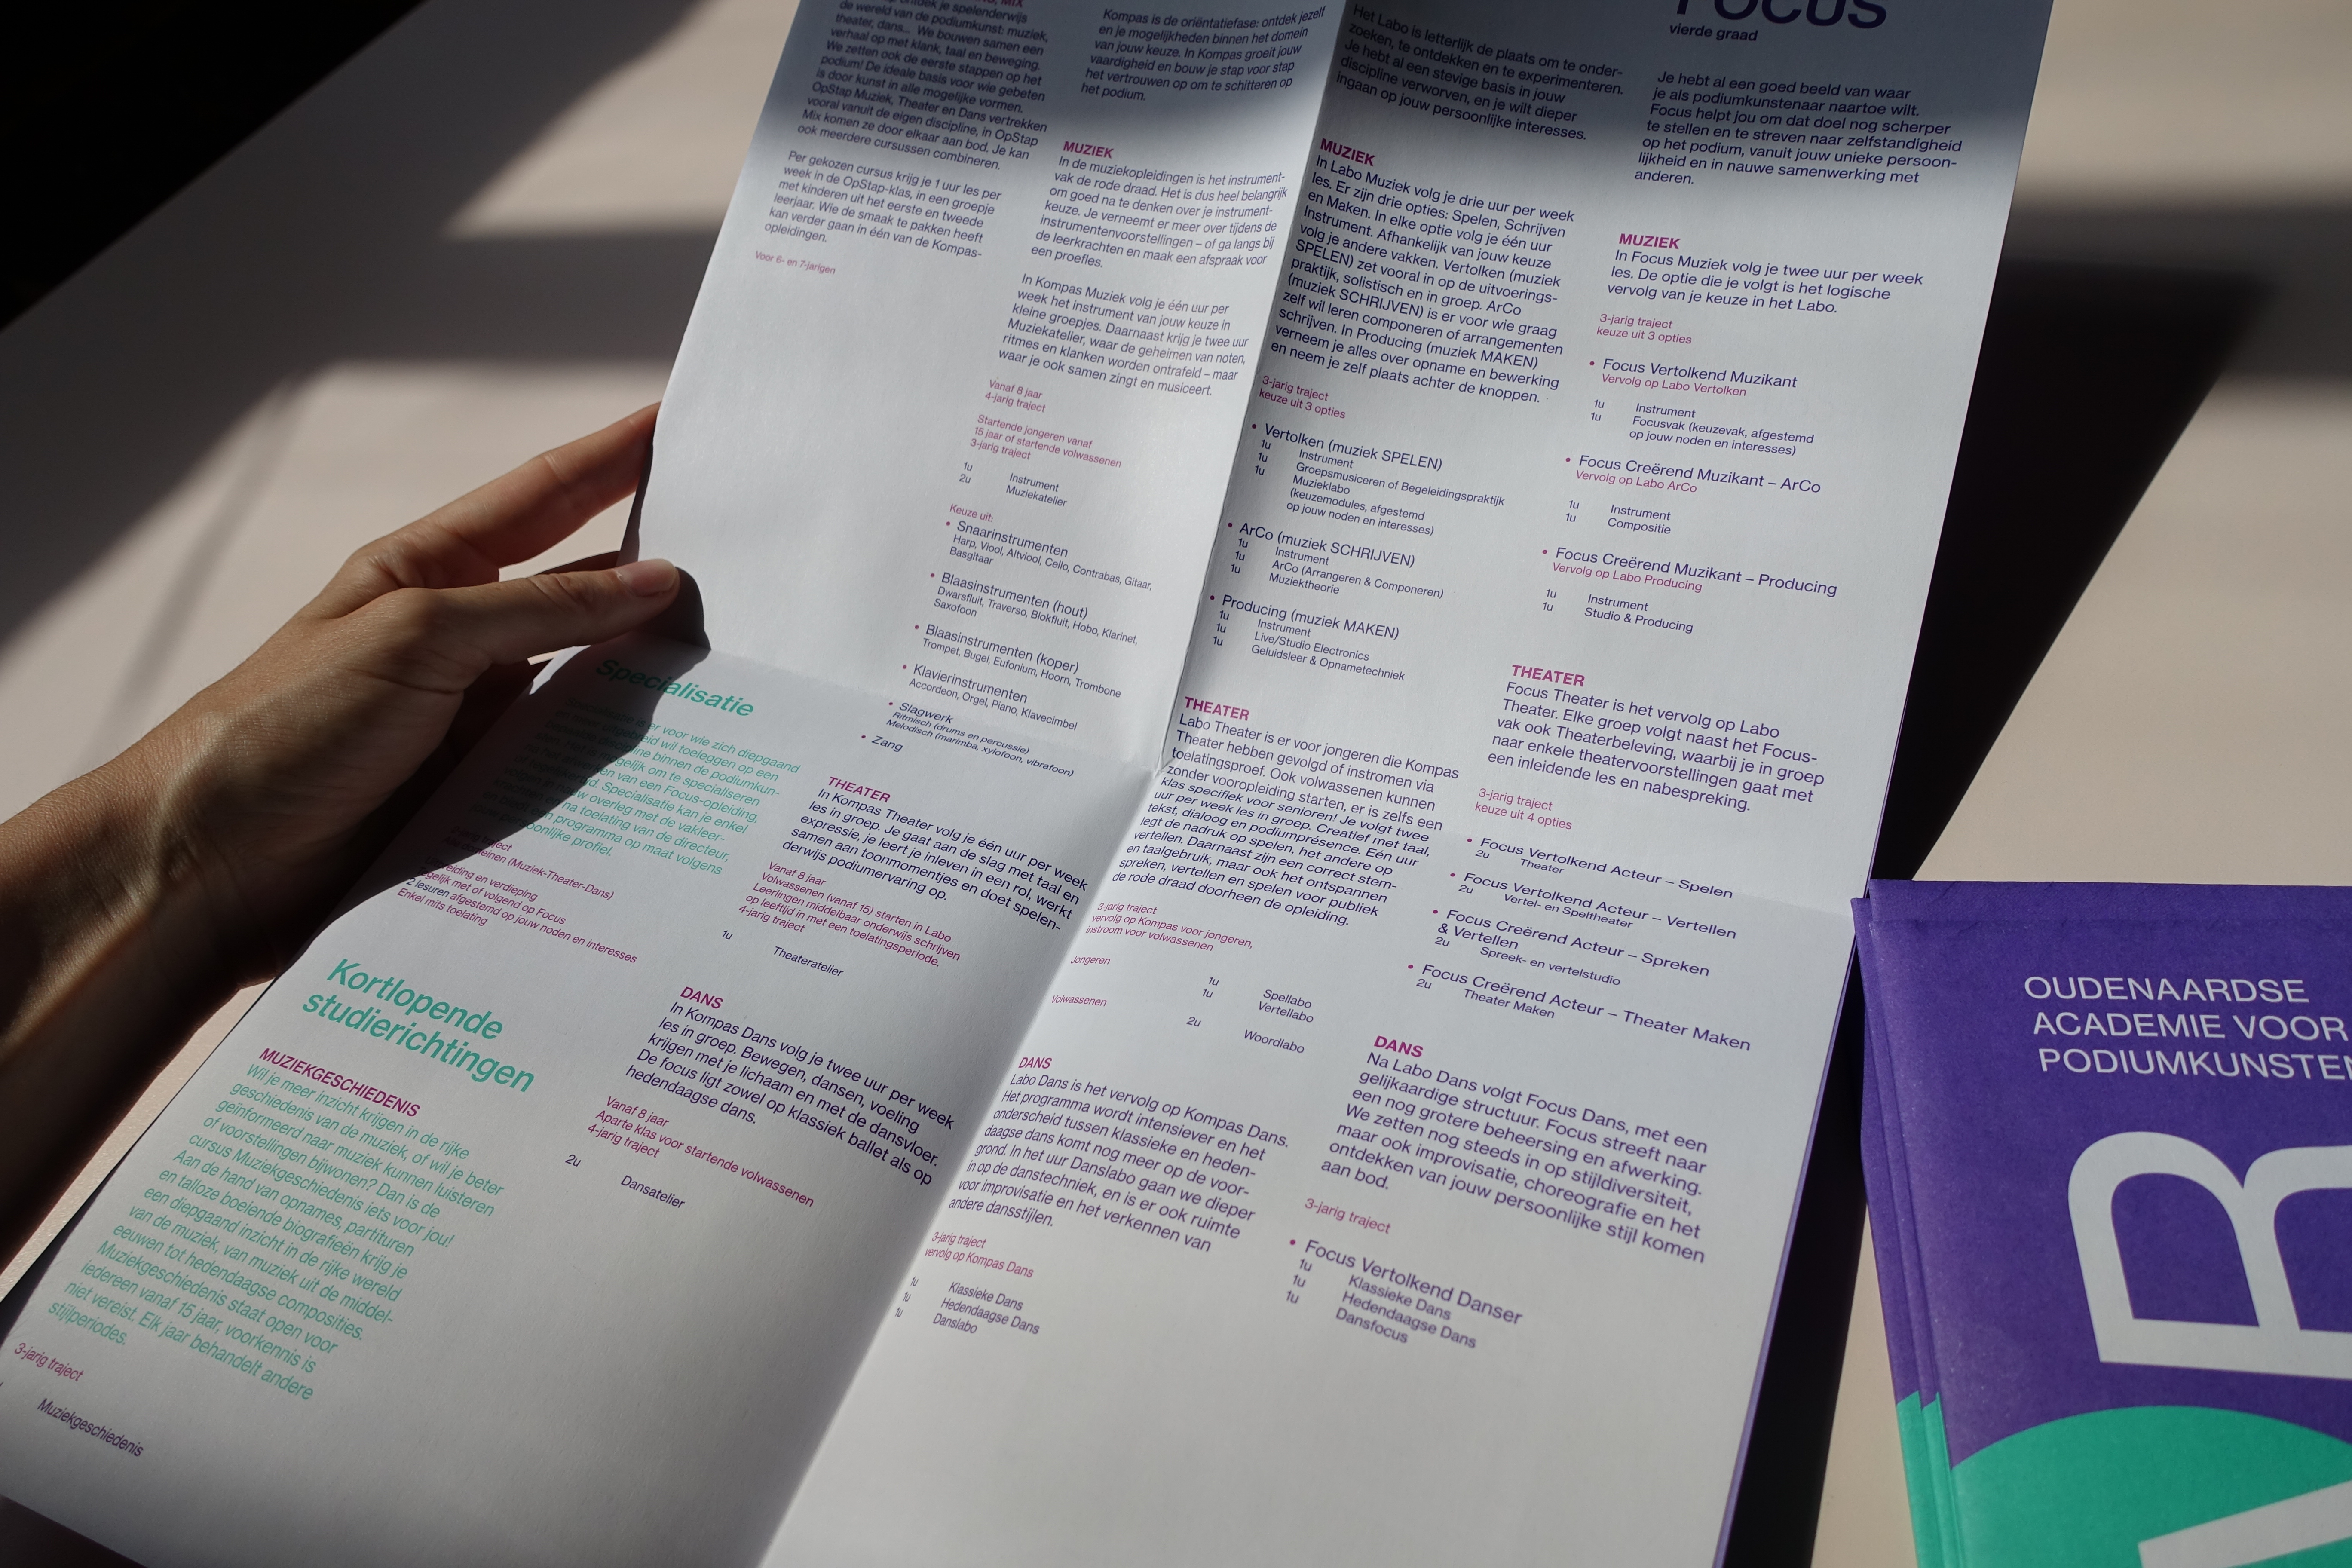 je spelenderwijs
de wereld van de podiumkunst: muziek,
theater, dans... We bouwen samen een
verhaal op met klank, taal en beweging.
We zetten ook de eerste stappen op het
podium! De ideale basis voor wie gebeten
is door kunst in alle mogelijke vormen.
OpStap Muziek, Theater en Dans vertrekken
vooral vanuit de eigen discipline, in OpStap
Mix komen ze door elkaar aan bod. Je kan
ook meerdere cursussen combineren.
Per gekozen cursus krijg je 1 uur les per
week in de OpStap-klas, in een groepje
met kinderen uit het eerste en tweede
leerjaar. Wie de smaak te pakken heeft
kan verder gaan in één van de Kompas-
opleidingen.
Voor 6- en 7-jarigen
Specialisatie
er voor wie zich diepgaand
wil toeleggen op een
binnen de podiumkun-
gelijk om te specialiseren
en van een Focus-opleiding,
d. Specialisatie kan je enkel
w overleg met de vakleer-
na toelating van de directeur,
n programma op maat volgens
oonlijke profiel.
(Muziek-Theater-Dans)
eiding en verdieping
gelijk met of volgend op Focus
2 lesuren afgestemd op jouw noden en interesses
Enkel mits toelating
Kortlopende
studierichtingen
MUZIEKGESCHIEDENIS
Wil je meer inzicht krijgen in de rijke
geschiedenis van de muziek, of wil je beter
geïnformeerd naar muziek kunnen luisteren
of voorstellingen bijwonen? Dan is de
cursus Muziekgeschiedenis iets voor jou!
Aan de hand van opnames, partituren
en talloze boeiende biografieën krijg je
een diepgaand inzicht in de rijke wereld
van de muziek, van muziek uit de middel-
eeuwen tot hedendaagse composities.
Muziekgeschiedenis staat open voor
iedereen vanaf 15 jaar, voorkennis is
niet vereist. Elk jaar behandelt andere
stijlperiodes.
3-jarig traject
Muziekgeschiedenis
Kompas is de oriëntatiefase: ontdek jezelf
en je mogelijkheden binnen het domein
van jouw keuze. In Kompas groeit jouw
vaardigheid en bouw je stap voor stap
het vertrouwen op om te schitteren op
het podium.
MUZIEK
In de muziekopleidingen is het instrument-
vak de rode draad. Het is dus heel belangrijk
om goed na te denken over je instrument-
keuze. Je verneemt er meer over tijdens de
instrumentenvoorstellingen – of ga langs bij
de leerkrachten en maak een afspraak voor
een proefles.
In Kompas Muziek volg je één uur per
week het instrument van jouw keuze in
kleine groepjes. Daarnaast krijg je twee uur
Muziekatelier, waar de geheimen van noten,
ritmes en klanken worden ontrafeld – maar
waar je ook samen zingt en musiceert.
Vanaf 8 jaar
4-jarig traject
Startende jongeren vanaf
15 jaar of startende volwassenen
3-jarig traject
1u Instrument
2u Muziekatelier
Keuze uit:
• Snaarinstrumenten
Harp, Viool, Altviool, Cello, Contrabas, Gitaar,
Basgitaar
• Blaasinstrumenten (hout)
Dwarsfluit, Traverso, Blokfluit, Hobo, Klarinet,
Saxofoon
• Blaasinstrumenten (koper)
Trompet, Bugel, Eufonium, Hoorn, Trombone
• Klavierinstrumenten
Accordeon, Orgel, Piano, Klavecimbel
• Slagwerk
Ritmisch (drums en percussie)
Melodisch (marimba, xylofoon, vibrafoon)
• Zang
THEATER
In Kompas Theater volg je één uur per week
les in groep. Je gaat aan de slag met taal en
expressie, je leert je inleven in een rol, werkt
samen aan toonmomentjes en doet spelen-
derwijs podiumervaring op.
Vanaf 8 jaar
Volwassenen (vanaf 15) starten in Labo
Leerlingen middelbaar onderwijs schrijven
op leeftijd in met een toelatingsperiode.
4-jarig traject
1u Theateratelier
DANS
In Kompas Dans volg je twee uur per week
les in groep. Bewegen, dansen, voeling
krijgen met je lichaam en met de dansvloer.
De focus ligt zowel op klassiek ballet als op
hedendaagse dans.
Vanaf 8 jaar
Aparte klas voor startende volwassenen
4-jarig traject
2u Dansatelier
Het Labo is letterlijk de plaats om te onder-
zoeken, te ontdekken en te experimenteren.
Je hebt al een stevige basis in jouw
discipline verworven, en je wilt dieper
ingaan op jouw persoonlijke interesses.
MUZIEK
In Labo Muziek volg je drie uur per week
les. Er zijn drie opties: Spelen, Schrijven
en Maken. In elke optie volg je één uur
Instrument. Afhankelijk van jouw keuze
volg je andere vakken. Vertolken (muziek
SPELEN) zet vooral in op de uitvoerings-
praktijk, solistisch en in groep. ArCo
(muziek SCHRIJVEN) is er voor wie graag
zelf wil leren componeren of arrangementen
schrijven. In Producing (muziek MAKEN)
verneem je alles over opname en bewerking
en neem je zelf plaats achter de knoppen.
3-jarig traject
keuze uit 3 opties
• Vertolken (muziek SPELEN)
1u Instrument
1u Groepsmusiceren of Begeleidingspraktijk
1u Muzieklabo
(keuzemodules, afgestemd
op jouw noden en interesses)
• ArCo (muziek SCHRIJVEN)
1u Instrument
1u ArCo (Arrangeren & Componeren)
1u Muziektheorie
• Producing (muziek MAKEN)
1u Instrument
1u Live/Studio Electronics
1u Geluidsleer & Opnametechniek
THEATER
Labo Theater is er voor jongeren die Kompas
Theater hebben gevolgd of instromen via
toelatingsproef. Ook volwassenen kunnen
zonder vooropleiding starten, er is zelfs een
klas specifiek voor senioren! Je volgt twee
uur per week les in groep. Creatief met taal,
tekst, dialoog en podiumprésence. Eén uur
legt de nadruk op spelen, het andere op
vertellen. Daarnaast zijn een correct stem-
en taalgebruik, maar ook het ontspannen
spreken, vertellen en spelen voor publiek
de rode draad doorheen de opleiding.
3-jarig traject
vervolg op Kompas voor jongeren,
instroom voor volwassenen
Jongeren
1u Spellabo
1u Vertellabo
Volwassenen
2u Woordlabo
DANS
Labo Dans is het vervolg op Kompas Dans.
Het programma wordt intensiever en het
onderscheid tussen klassieke en heden-
daagse dans komt nog meer op de voor-
grond. In het uur Danslabo gaan we dieper
in op de danstechniek, en is er ook ruimte
voor improvisatie en het verkennen van
andere dansstijlen.
3-jarig traject
vervolg op Kompas Dans
1u Klassieke Dans
1u Hedendaagse Dans
1u Danslabo
FOCUS
vierde graad
Je hebt al een goed beeld van waar
je als podiumkunstenaar naartoe wilt.
Focus helpt jou om dat doel nog scherper
te stellen en te streven naar zelfstandigheid
op het podium, vanuit jouw unieke persoon-
lijkheid en in nauwe samenwerking met
anderen.
MUZIEK
In Focus Muziek volg je twee uur per week
les. De optie die je volgt is het logische
vervolg van je keuze in het Labo.
3-jarig traject
keuze uit 3 opties
• Focus Vertolkend Muzikant
Vervolg op Labo Vertolken
1u Instrument
1u Focusvak (keuzevak, afgestemd
op jouw noden en interesses)
• Focus Creërend Muzikant – ArCo
Vervolg op Labo ArCo
1u Instrument
1u Compositie
• Focus Creërend Muzikant – Producing
Vervolg op Labo Producing
1u Instrument
1u Studio & Producing
THEATER
Focus Theater is het vervolg op Labo
Theater. Elke groep volgt naast het Focus-
vak ook Theaterbeleving, waarbij je in groep
naar enkele theatervoorstellingen gaat met
een inleidende les en nabespreking.
3-jarig traject
keuze uit 4 opties
• Focus Vertolkend Acteur – Spelen
2u Theater
• Focus Vertolkend Acteur – Vertellen
2u Vertel- en Speltheater
• Focus Creërend Acteur – Spreken
& Vertellen
2u Spreek- en vertelstudio
• Focus Creërend Acteur – Theater Maken
2u Theater Maken
DANS
Na Labo Dans volgt Focus Dans, met een
gelijkaardige structuur. Focus streeft naar
een nog grotere beheersing en afwerking.
We zetten nog steeds in op stijldiversiteit,
maar ook improvisatie, choreografie en het
ontdekken van jouw persoonlijke stijl komen
aan bod.
3-jarig traject
• Focus Vertolkend Danser
1u Klassieke Dans
1u Hedendaagse Dans
1u Dansfocus
OUDENAARDSE
ACADEMIE VOOR
PODIUMKUNSTEN